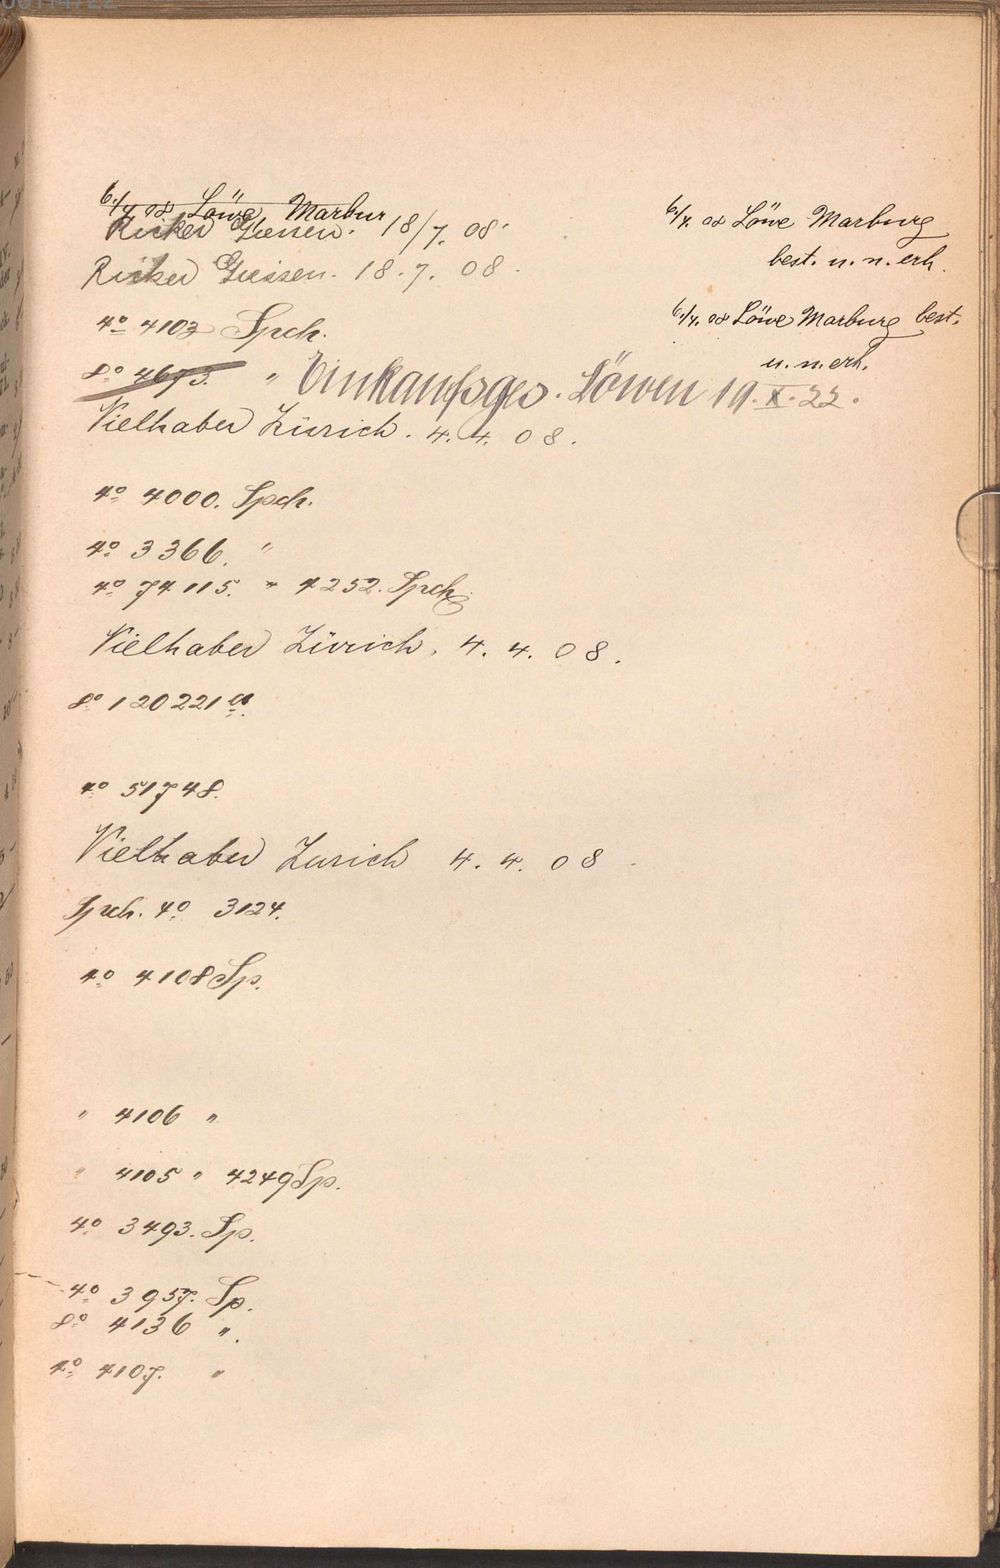 6./4. 08 Löwe Marbur
Ricker Giessen. 18/7. 08.
Ricker Giessen. 18. 7. 08.
4° 4103 Spch.
8° 4673. " Einkaufsges. Löwen 19. X. 22.
Vielhaber Zürich. 4. 4. 08.
4° 4000. Spch.
4° 3366. "
4° 74115. " 4252. Spch.
Vielhaber Zürich. 4. 4. 08.
8° 120221
4° 51748.
Vielhaber Zürich 4. 4. 08.
Spch. 4° 3124.
4° 4108 Sp.
" 4106 "
" 4105 " 4249 Sp.
4° 3493. Sp.
4° 3957. Sp.
8° 4136 ".
4° 4107. "
6./4. 08 Löwe Marburg
best. u. n. erh.
6./4. 08 Löwe Marburg best.
u. n. erh.